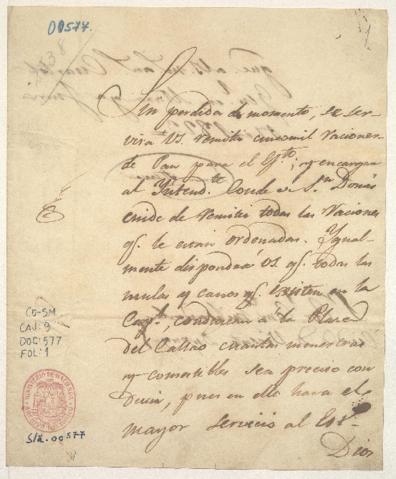 00577.
Sin perdida de momento, se ser-
virá VS. remitir cincomil raciones
de Pan para el Extº; y encargar
al Yntend.te Conde de Sn. Donás
cuide de remitir todas las raciones
qe. le estan ordenadas. Ygual-
mente dispondrá VS qe. todas las
mulas y carros qe. existen en la
Capl., conduzcan a la Plaza
del Callao cuantas menestras
y comestibles sea preciso con
ducir, pues en ello hara el
mayor servicio al Estº.
Dios
CO-SM
CAJ: 9
DOC: 577
FOL: 1
S/2.00577